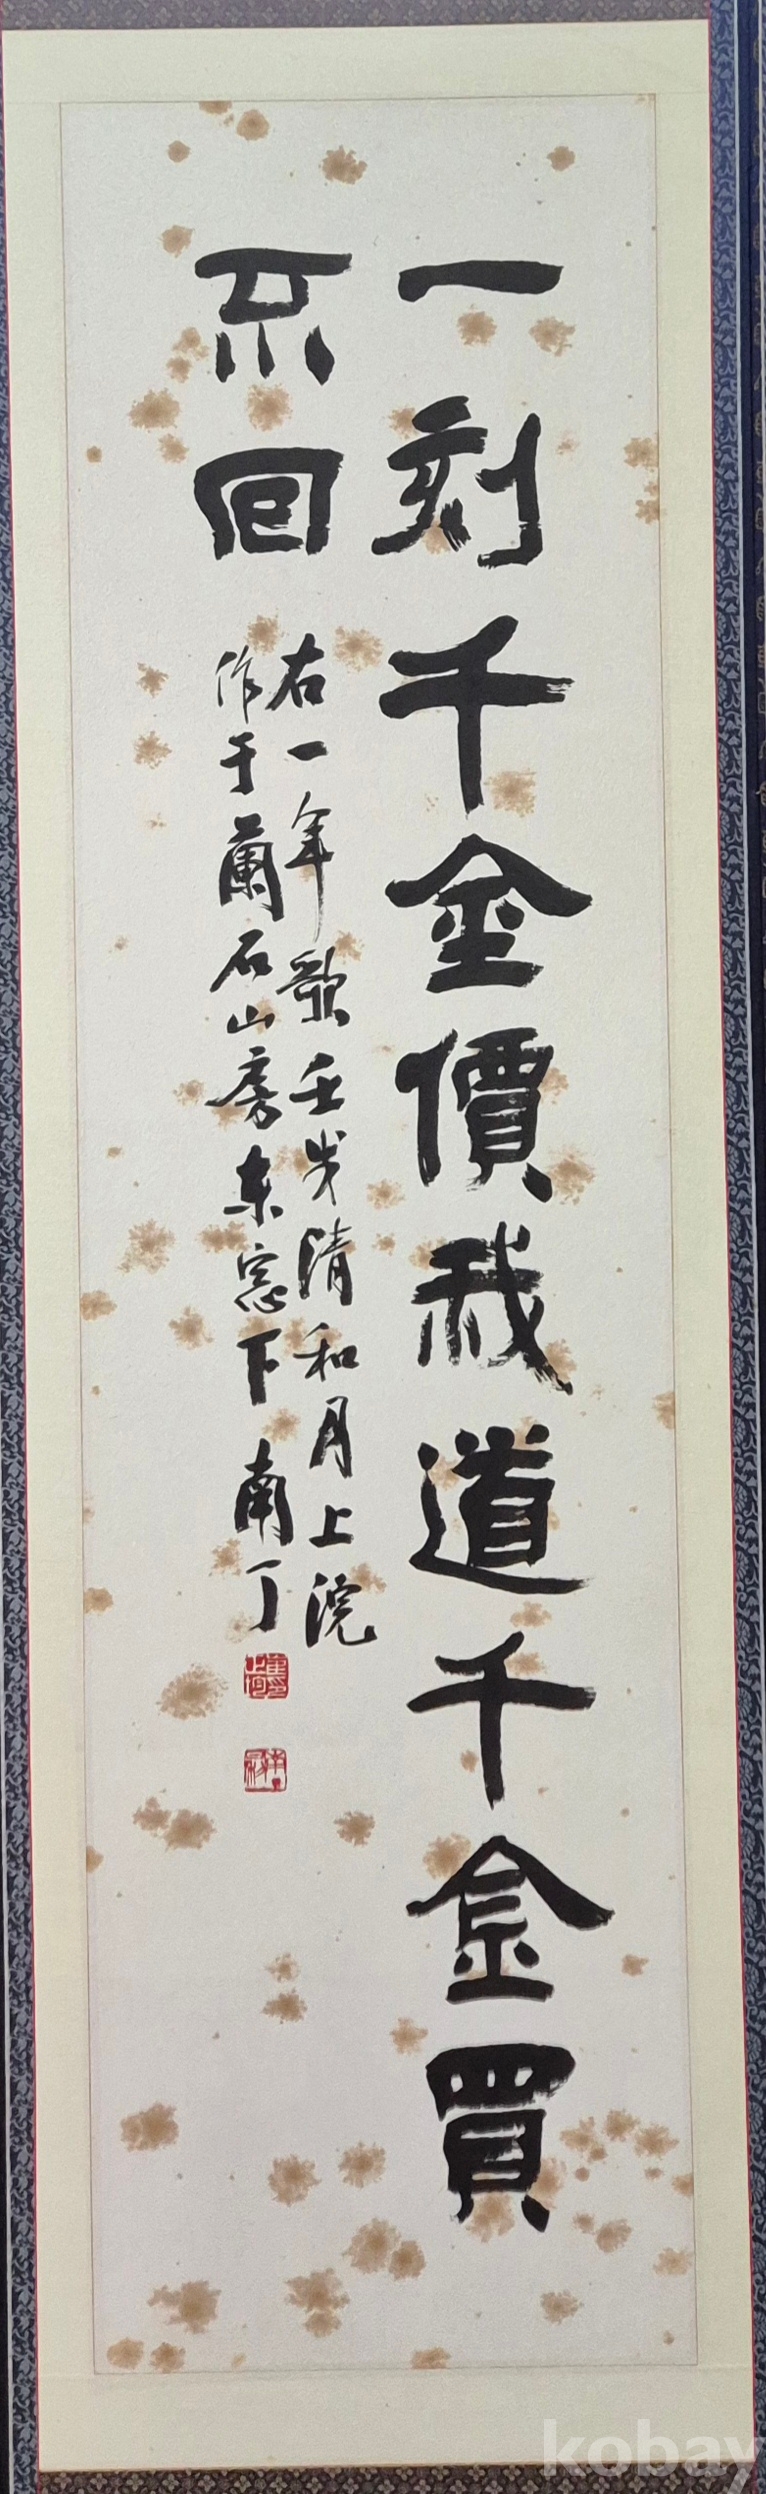 一刻千金價我道千金買
不回
右一年歌壬戌清和月上浣
作于蘭石山房東窓下 南丁
kobay